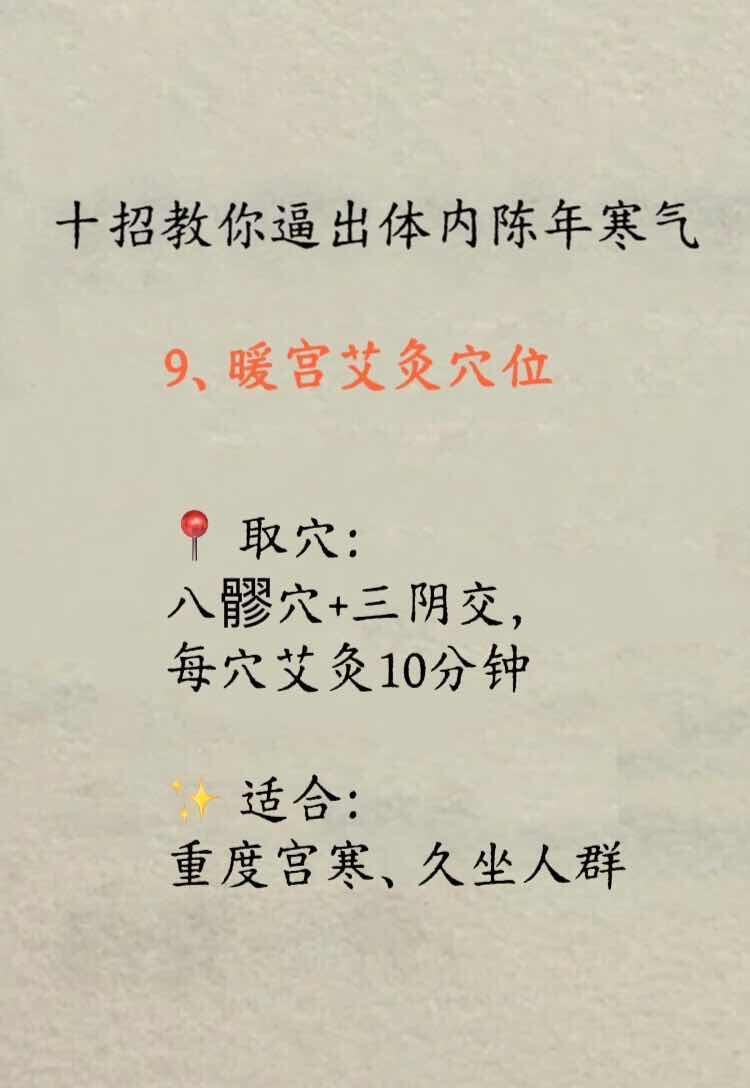 十招教你逼出体内陈年寒气
9、暖宫艾灸穴位
📍 取穴：
八髎穴+三阴交，
每穴艾灸10分钟
✨ 适合：
重度宫寒、久坐人群